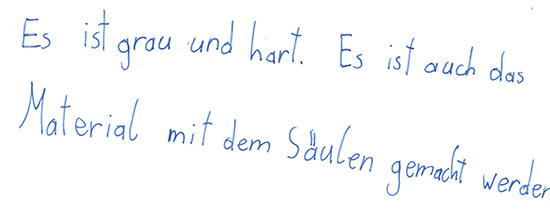 Es ist grau und hart. Es ist auch das
Material mit dem Säulen gemacht werden